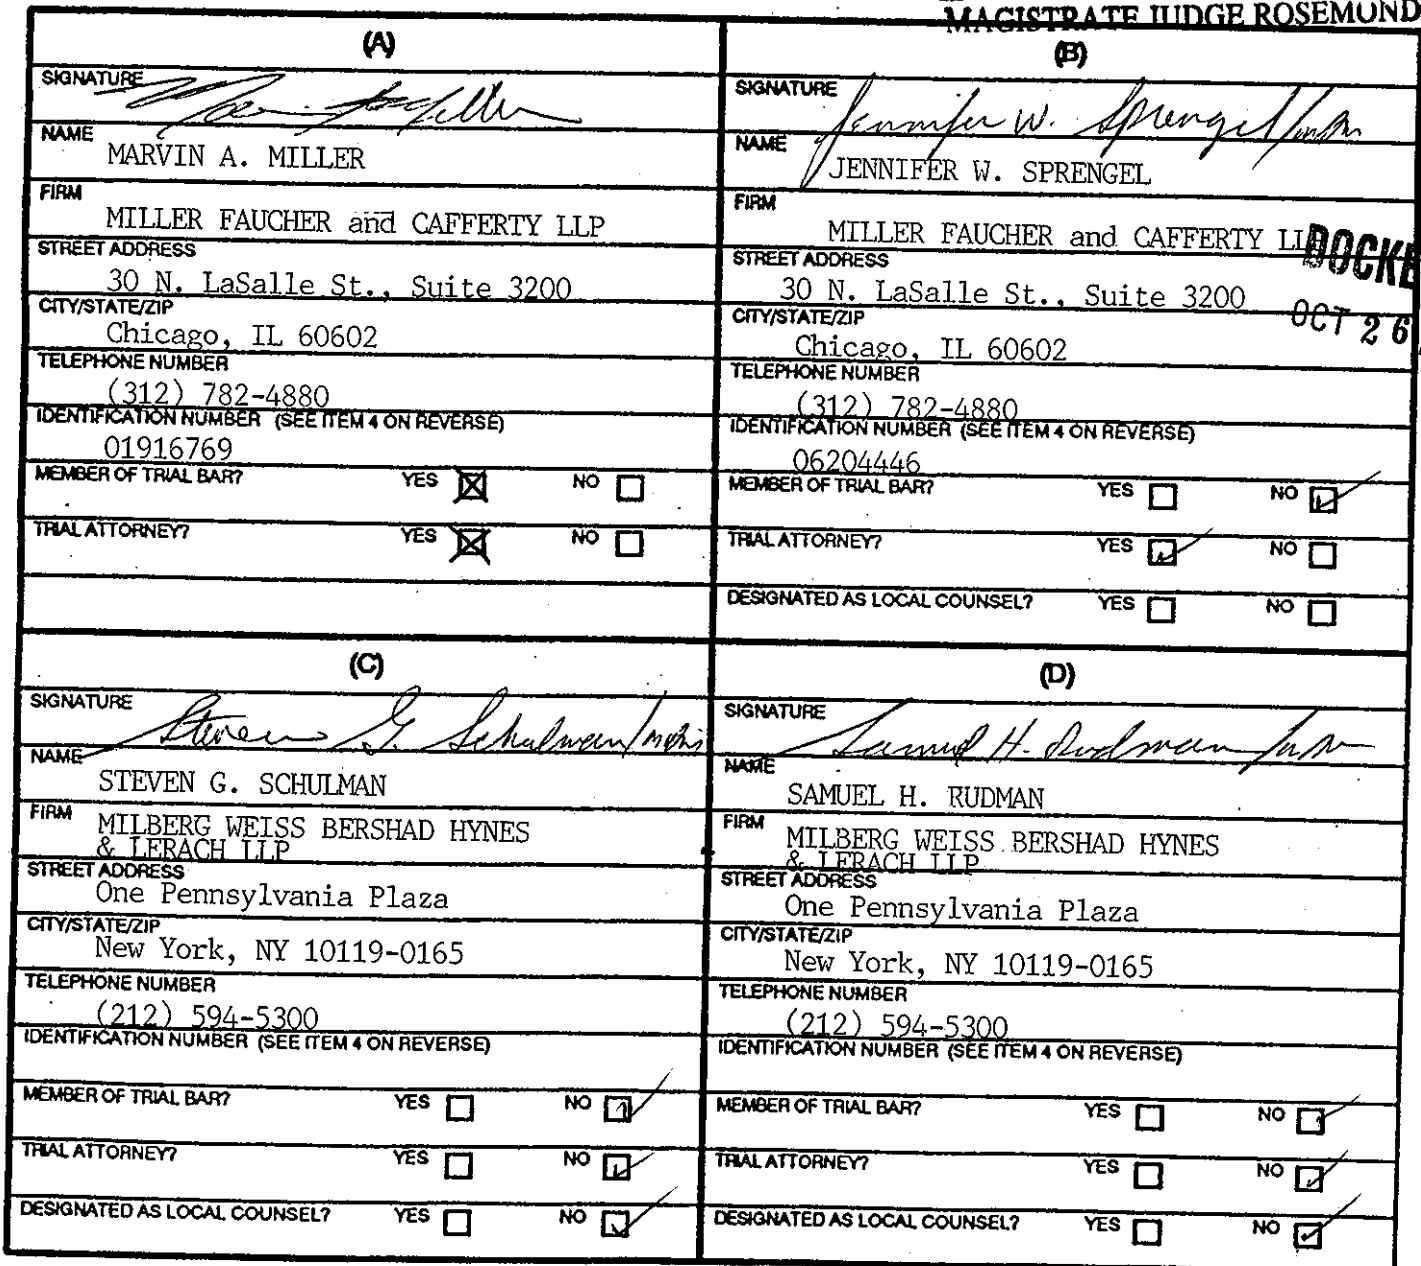 MAGISTRATE JUDGE ROSEMOND
(A)
SIGNATURE
NAME
MARVIN A. MILLER
FIRM
MILLER FAUCHER and CAFFERTY LLP
STREET ADDRESS
30 N. LaSalle St., Suite 3200
CITY/STATE/ZIP
Chicago, IL 60602
TELEPHONE NUMBER
(312) 782-4880
IDENTIFICATION NUMBER (SEE ITEM 4 ON REVERSE)
01916769
MEMBER OF TRIAL BAR? YES NO
TRIAL ATTORNEY? YES NO
(B)
SIGNATURE Jennifer W. Sprengel
NAME
JENNIFER W. SPRENGEL
FIRM
MILLER FAUCHER and CAFFERTY
STREET ADDRESS
30 N. LaSalle St., Suite 3200
CITY/STATE/ZIP
Chicago, IL 60602
TELEPHONE NUMBER
(312) 782-4880
IDENTIFICATION NUMBER (SEE ITEM 4 ON REVERSE)
06204446
MEMBER OF TRIAL BAR? YES NO
TRIAL ATTORNEY? YES NO
DESIGNATED AS LOCAL COUNSEL? YES NO
DOCKE
OCT 26
(C)
SIGNATURE Steven G. Schulman
NAME
STEVEN G. SCHULMAN
FIRM MILBERG WEISS BERSHAD HYNES
& LERACH LLP
STREET ADDRESS
One Pennsylvania Plaza
CITY/STATE/ZIP
New York, NY 10119-0165
TELEPHONE NUMBER
(212) 594-5300
IDENTIFICATION NUMBER (SEE ITEM 4 ON REVERSE)
MEMBER OF TRIAL BAR? YES NO
TRIAL ATTORNEY? YES NO
DESIGNATED AS LOCAL COUNSEL? YES NO
(D)
SIGNATURE Samuel H. Rudman
NAME
SAMUEL H. RUDMAN
FIRM MILBERG WEISS BERSHAD HYNES
& LERACH LLP
STREET ADDRESS
One Pennsylvania Plaza
CITY/STATE/ZIP
New York, NY 10119-0165
TELEPHONE NUMBER
(212) 594-5300
IDENTIFICATION NUMBER (SEE ITEM 4 ON REVERSE)
MEMBER OF TRIAL BAR? YES NO
TRIAL ATTORNEY? YES NO
DESIGNATED AS LOCAL COUNSEL? YES NO